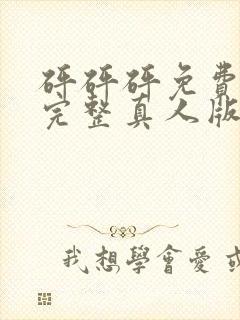 砰砰砰免費
完整真人版
我想學會愛或